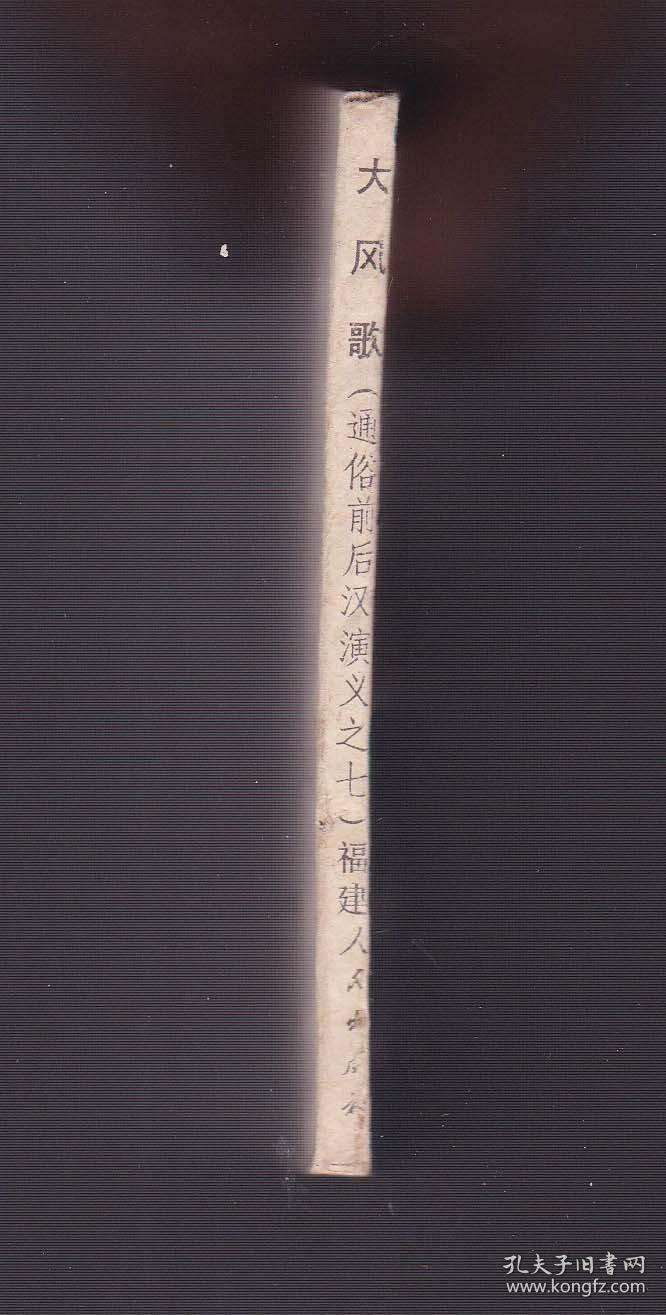 大风歌（通俗前后汉演义之七）福建人民出版社
孔夫子旧书网
www.kongfz.com